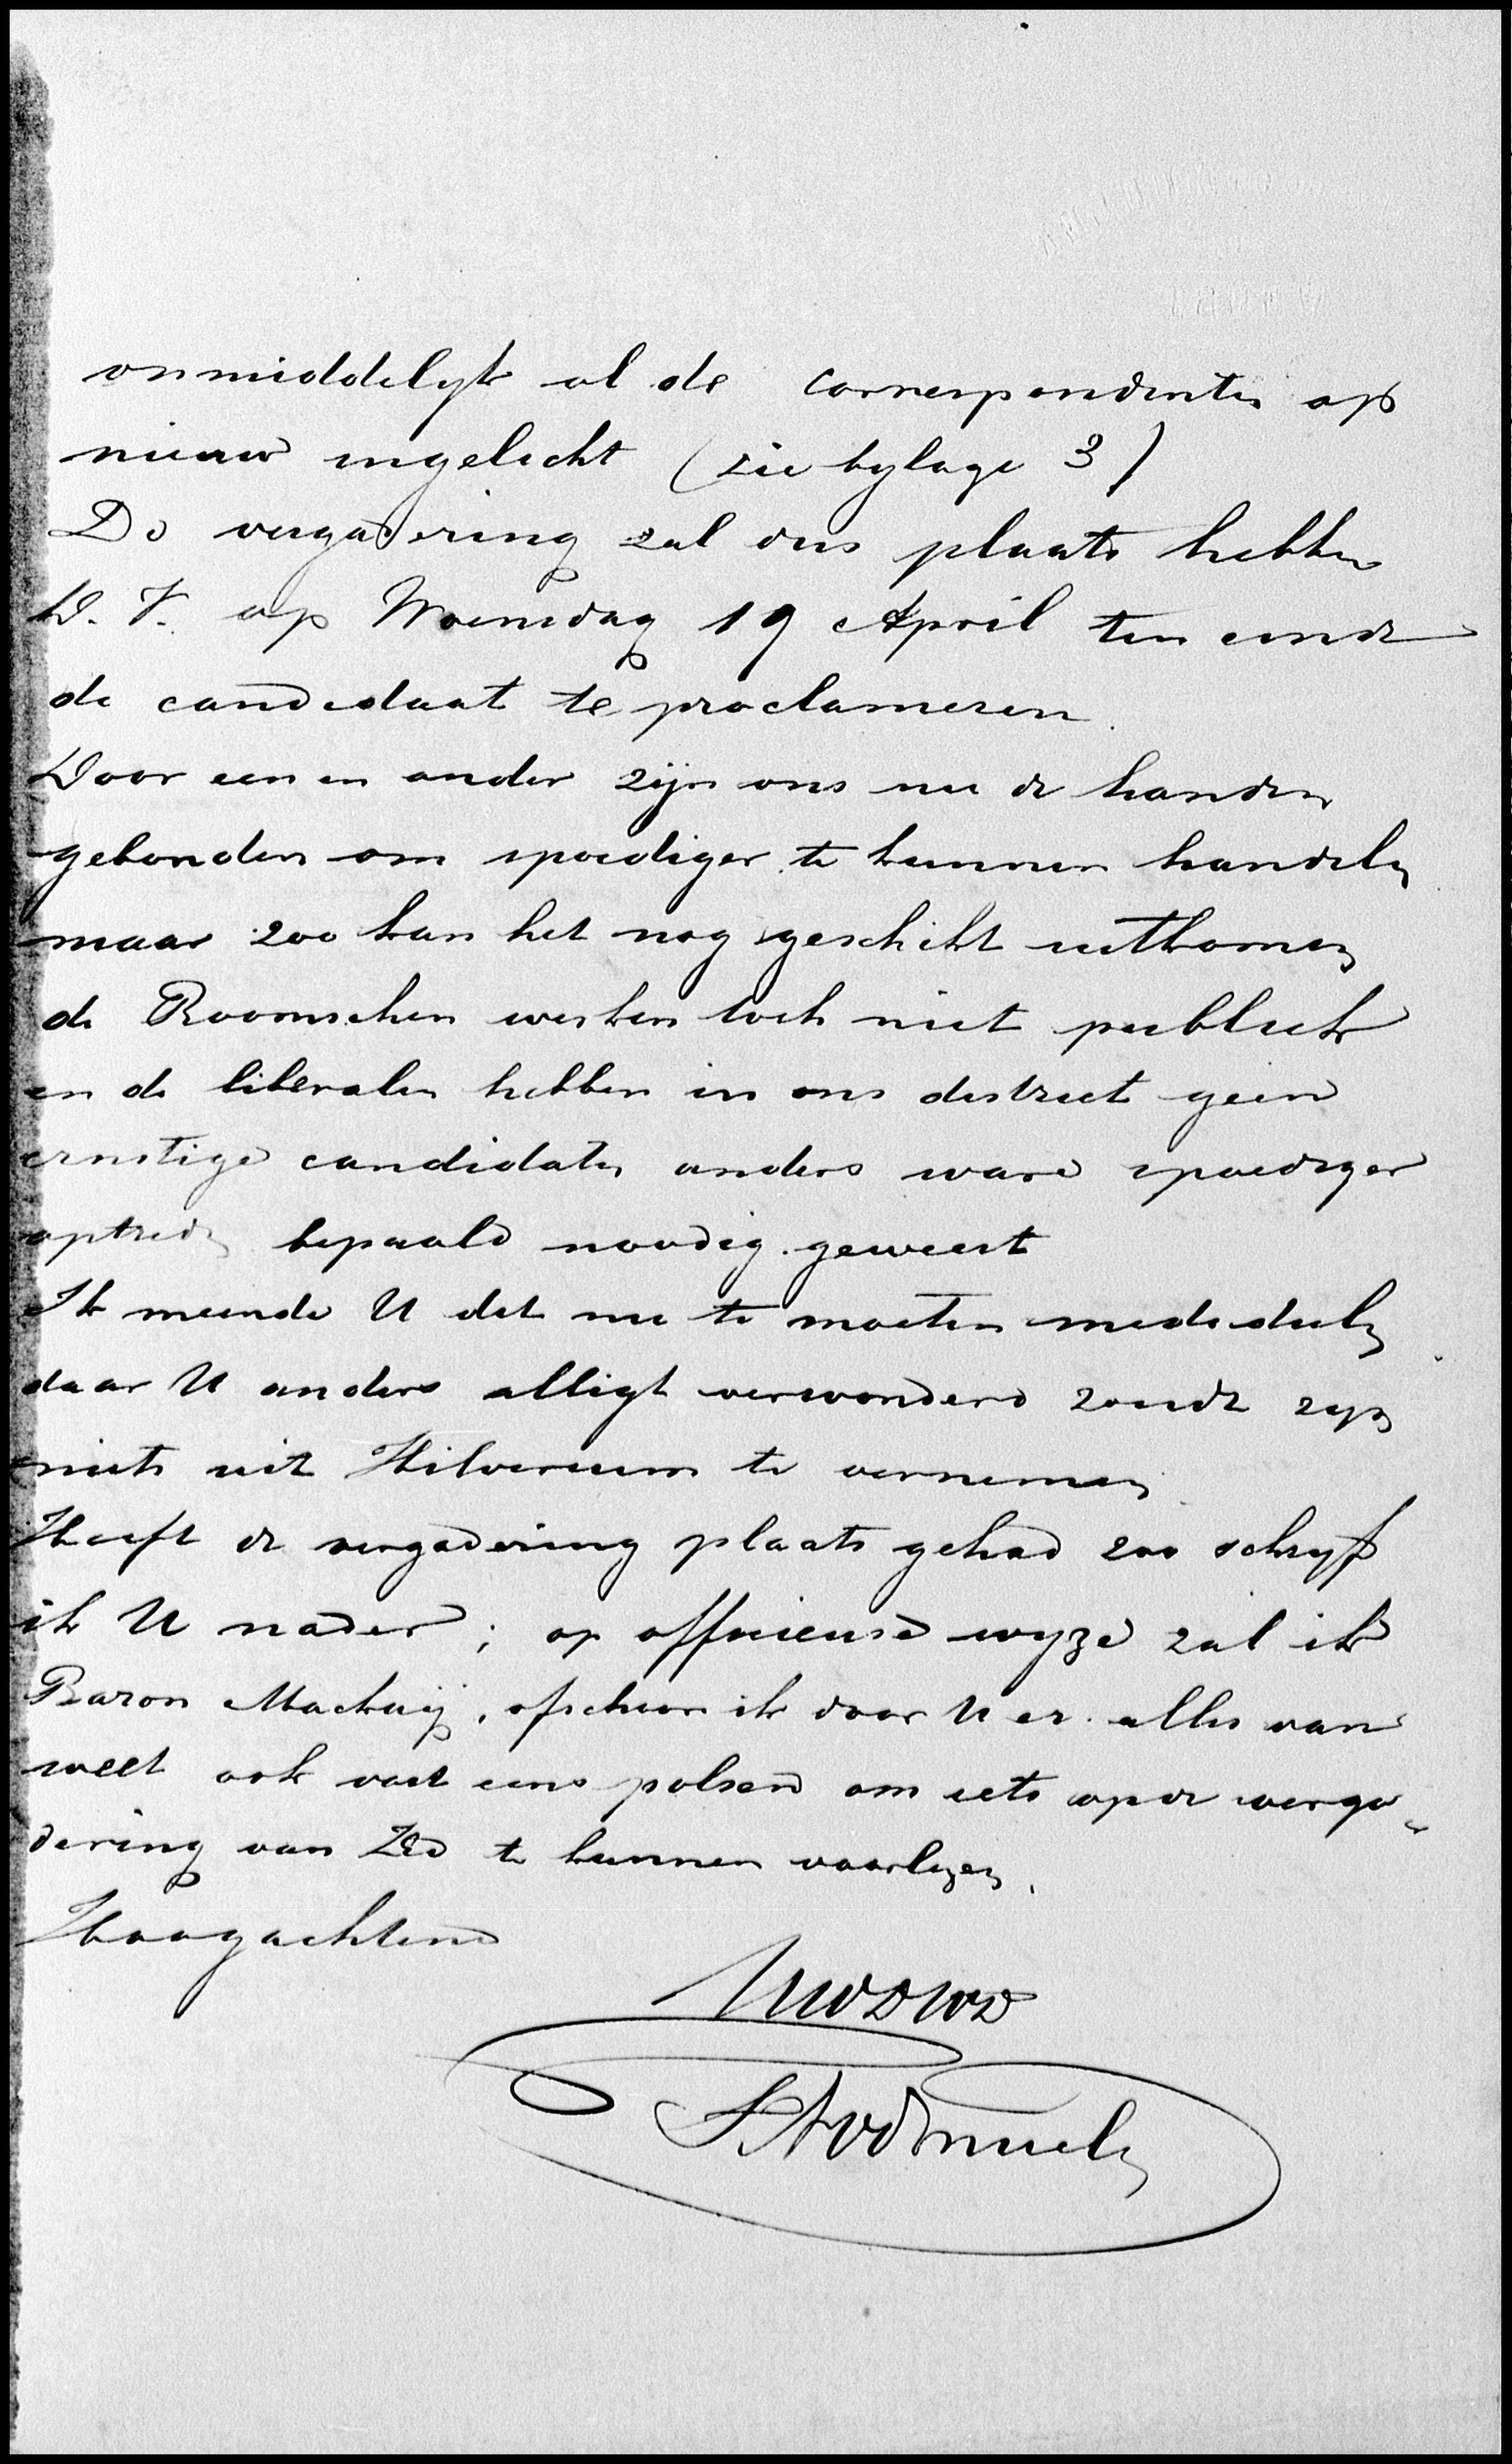 onmiddelyk al de correspondenten op
nieuw ingelicht (zie bylage 3)
De vergadering zal dus plaats hebben
D. V. op Woensdag 19 April ten einde
de candidaat te proclameren.
Door een en ander zijn ons nu de handen
gebonden om spoediger te kunnen handelen
maar zoo kan het nog geschikt uitkomen
de Roomschen werken toch niet publiek
en de liberalen hebben in ons district geen
ernstige candidaten anders ware spoediger
optreden bepaald noodig geweest
Ik meende U dit nu te moeten mededeelen
daar U anders alligt verwonderd zoudt zyn
niets uit Hilversum te vernemen.
Heeft de vergadering plaats gehad zoo schryf
ik U nader; op officieuse wyze zal ik
Baron Mackaij, ofschoon ik door U er alles van
weet ook vast eens polsen om iets op de verga-
dering van ZEd te kunnen voorlezen.
Hoogachtend
UWDWD